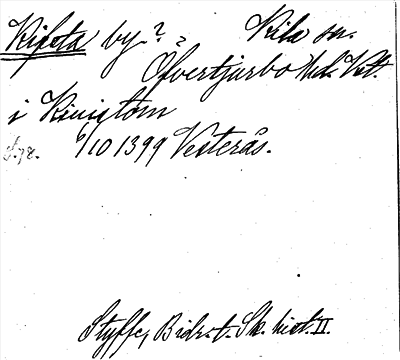 Kipeta by? ? Kila sn.
Öfvertjurbo hd. Vstl.
i Kinigtom
S. 78. 6/10 1399 Vesterås.
Styffe, Bidr. t. Sk. hist. II.